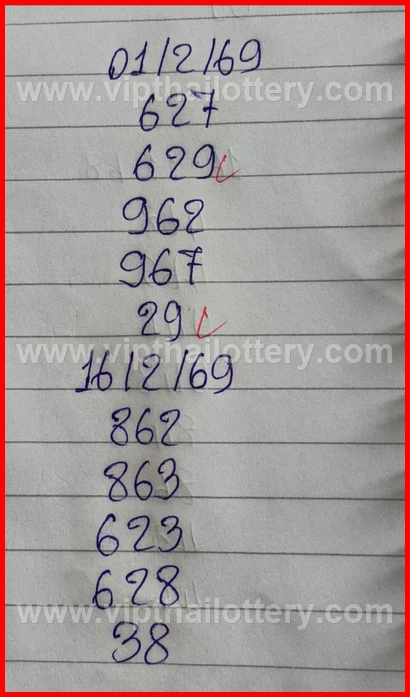 01/2/69
www.vipthailottery.com
627
629
962
967
29
www.vipthailottery.com
16/2/69
862
863
623
628
www.vipthailottery.com
38